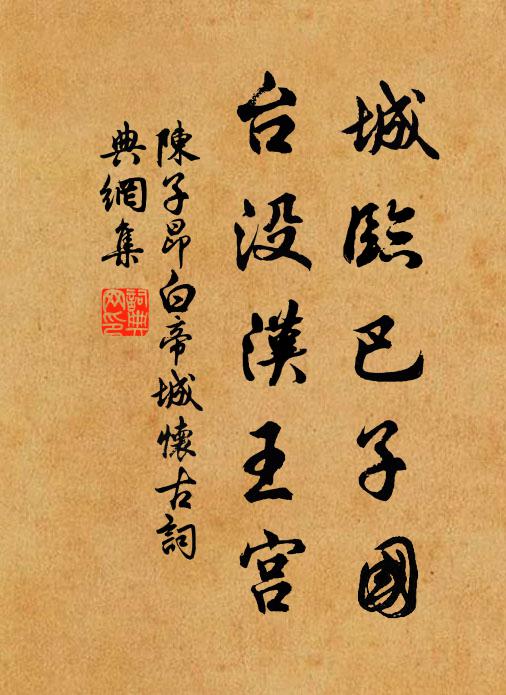 城臨巴子國
台没漢王宮
陳子昂白帝城懷古詞
典網集
詞典网印